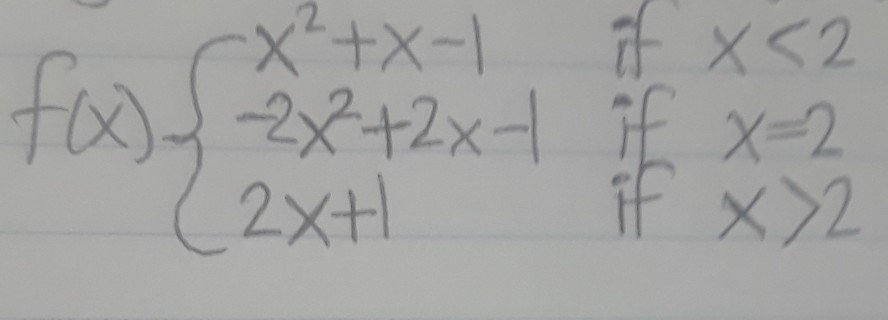 f(x) { x²+x-1 if x<2
-2x²+2x-1 if x=2
2x+1 if x>2